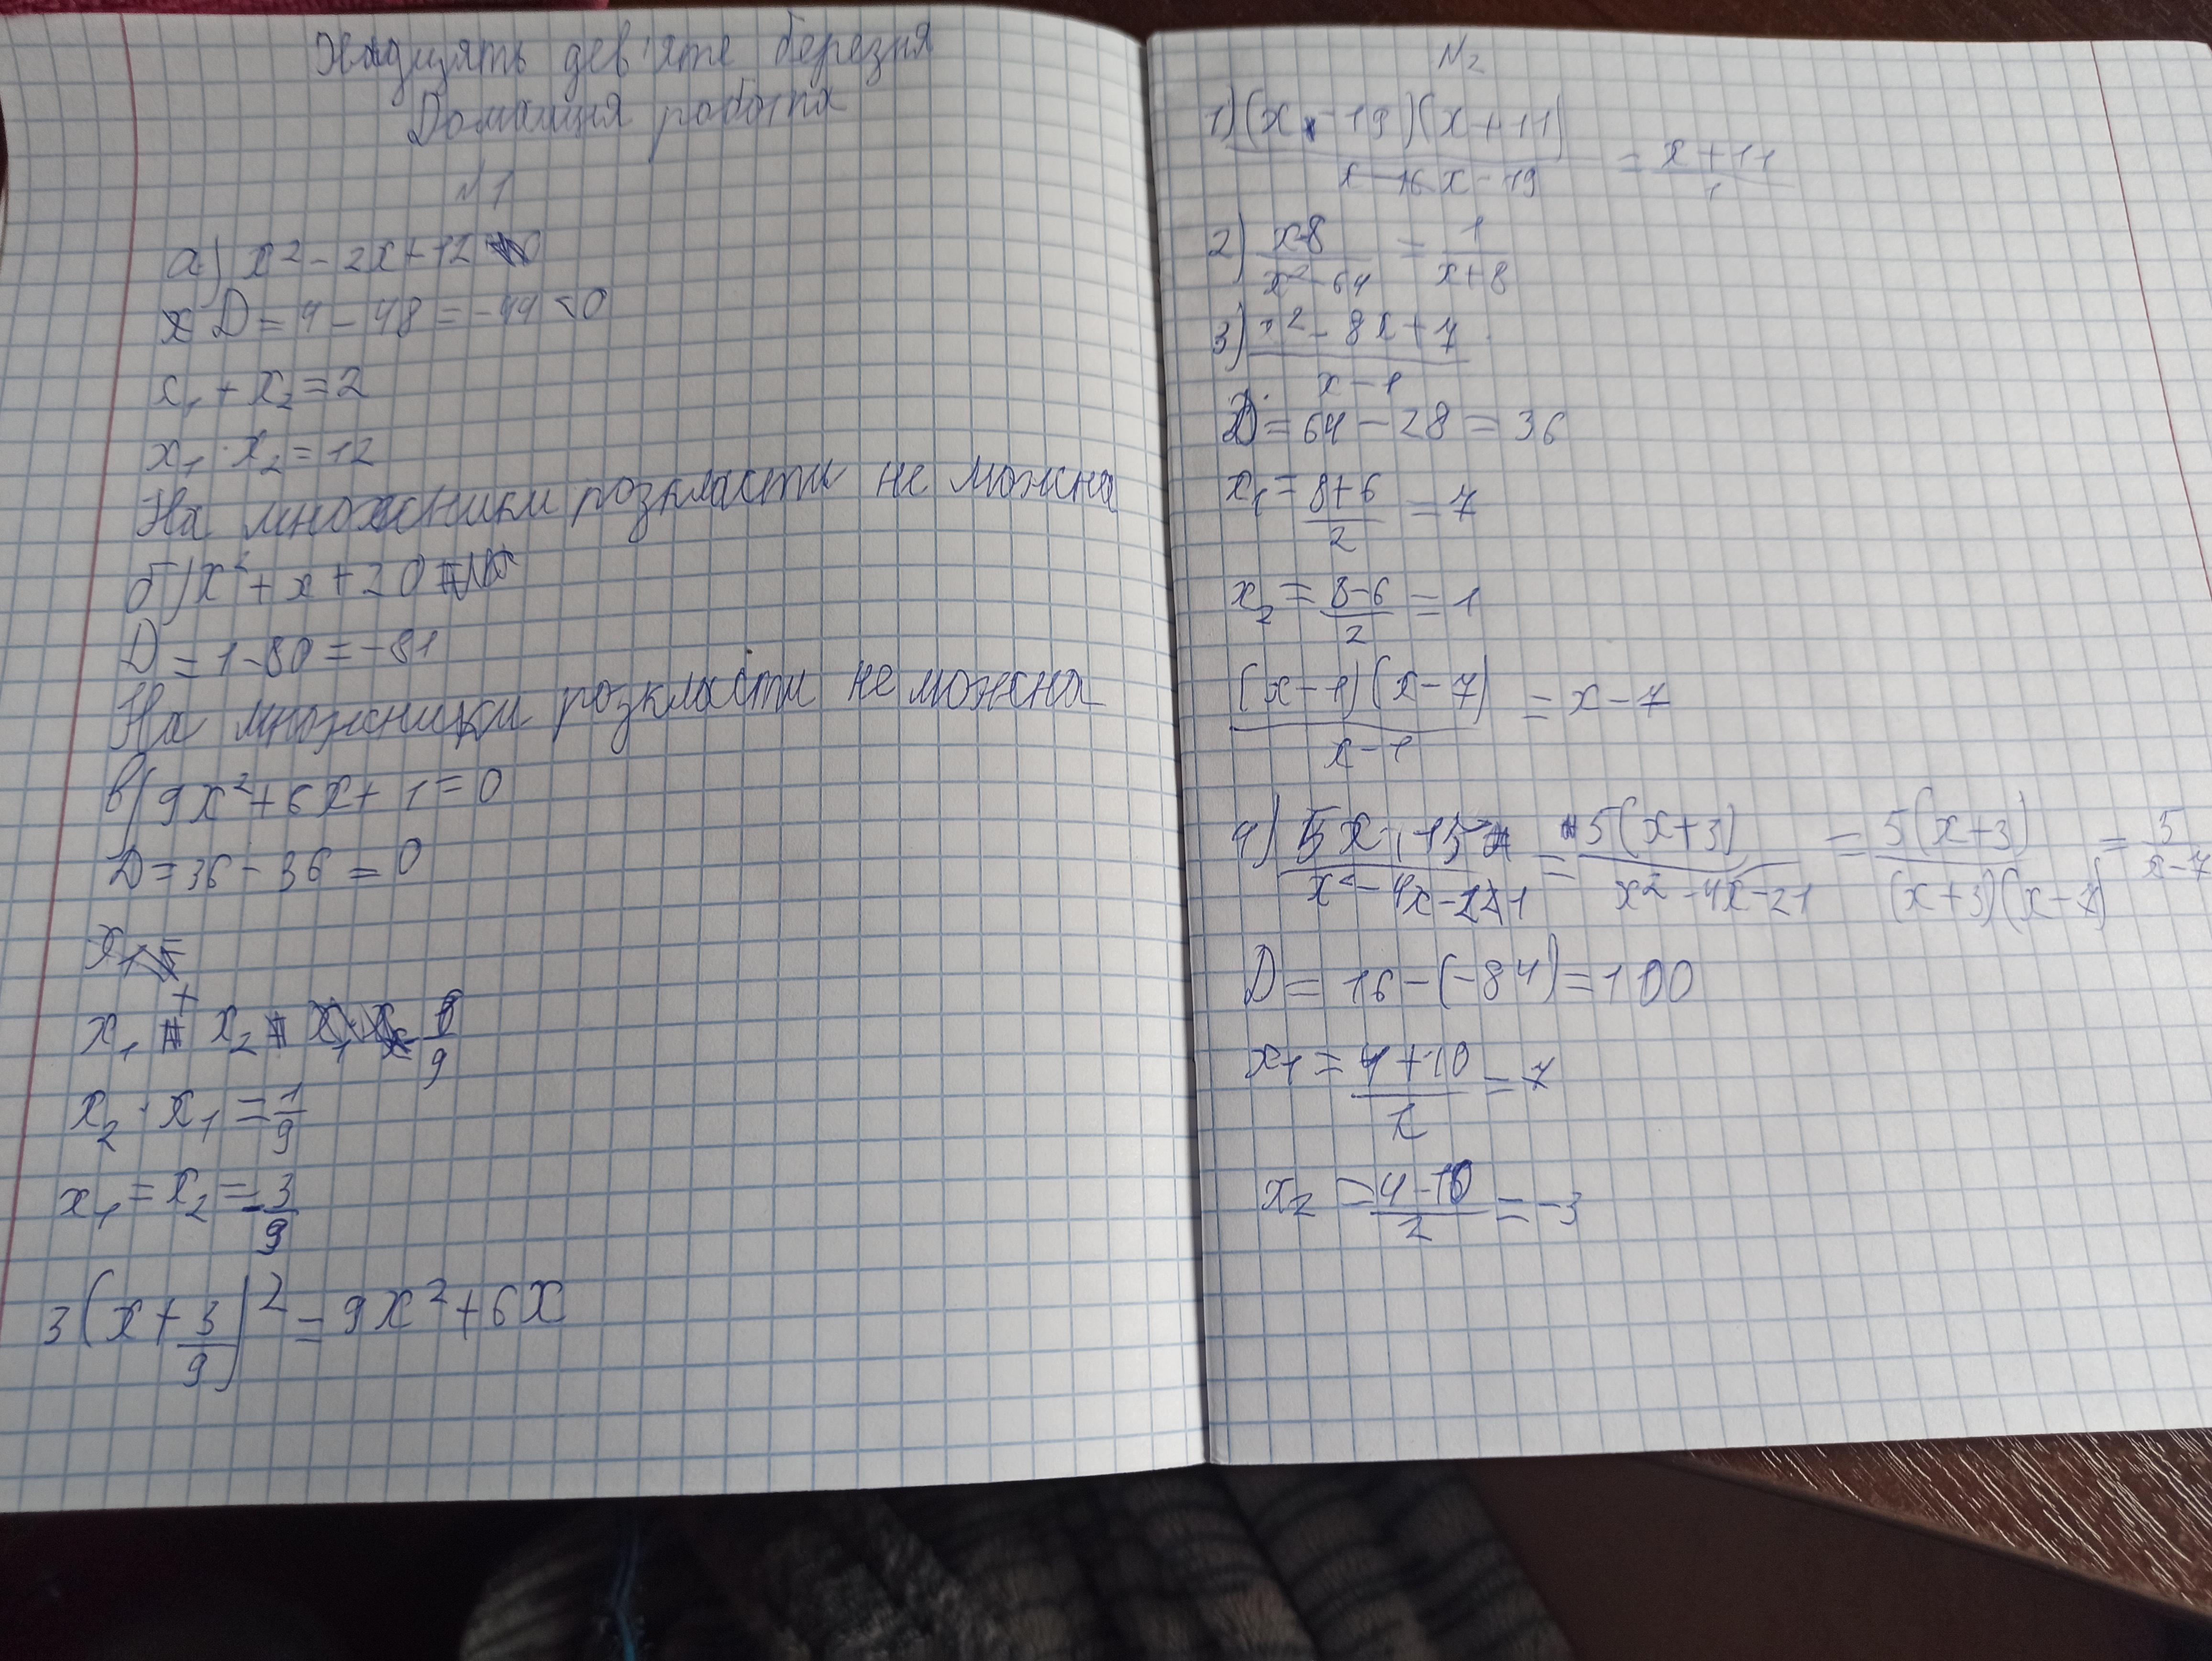 дев'яте березня
Домашня робота
№1
а) x² - 2x + 12
D = 4 - 48 = -44 < 0
x₁ + x₂ = 2
x₁ · x₂ = 12
На множники розкласти не можна
б) x² + x + 20
D = 1 - 80 = -81
На множники розкласти не можна
в) 9x² + 6x + 1 = 0
D = 36 - 36 = 0
x₁ + x₂
x₂ · x₁ = 1/9
x₁ = x₂ = -3/9
3(x + 3/9)² = 9x² + 6x
№2
1) (x - 19)(x + 11) / x - 16 x - 19 = x + 11 / 1
2) x-8 / x² - 64 = 1 / x + 8
3) x² - 8x + 7 / x - 1
D = 64 - 28 = 36
x₁ = 8 + 6 / 2 = 7
x₂ = 8 - 6 / 2 = 1
(x - 1)(x - 7) / x - 1 = x - 7
4) 5x + 15 / x² - 4x - 21 = 5(x + 3) / x² - 4x - 21 = 5(x + 3) / (x + 3)(x - 7) = 5 / x - 7
D = 16 - (-84) = 100
x₁ = 4 + 10 / 2 = 7
x₂ = 4 - 10 / 2 = -3